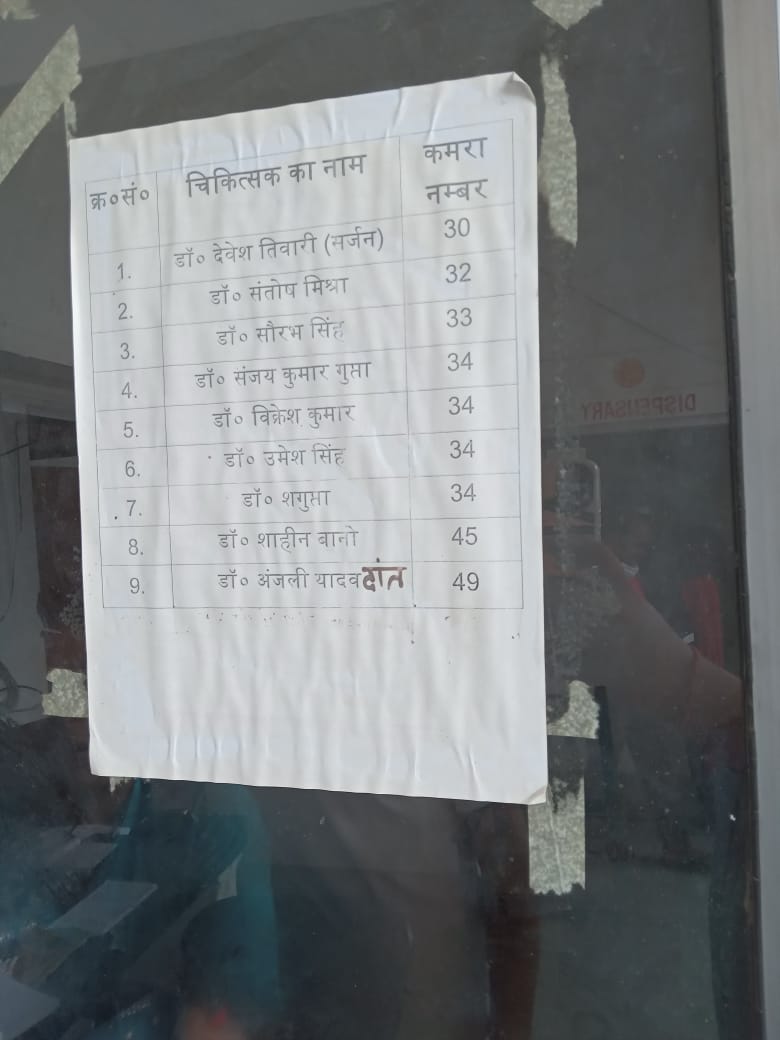 क्र०सं० चिकित्सक का नाम कमरा नम्बर
1. डॉ० देवेश तिवारी (सर्जन) 30
2. डॉ० संतोष मिश्रा 32
3. डॉ० सौरभ सिंह 33
4. डॉ० संजय कुमार गुप्ता 34
5. डॉ० विक्रेश कुमार 34
6. डॉ० उमेश सिंह 34
7. डॉ० शगुप्ता 34
8. डॉ० शाहीन बानो 45
9. डॉ० अंजली यादव दांत 49
DISPENSARY